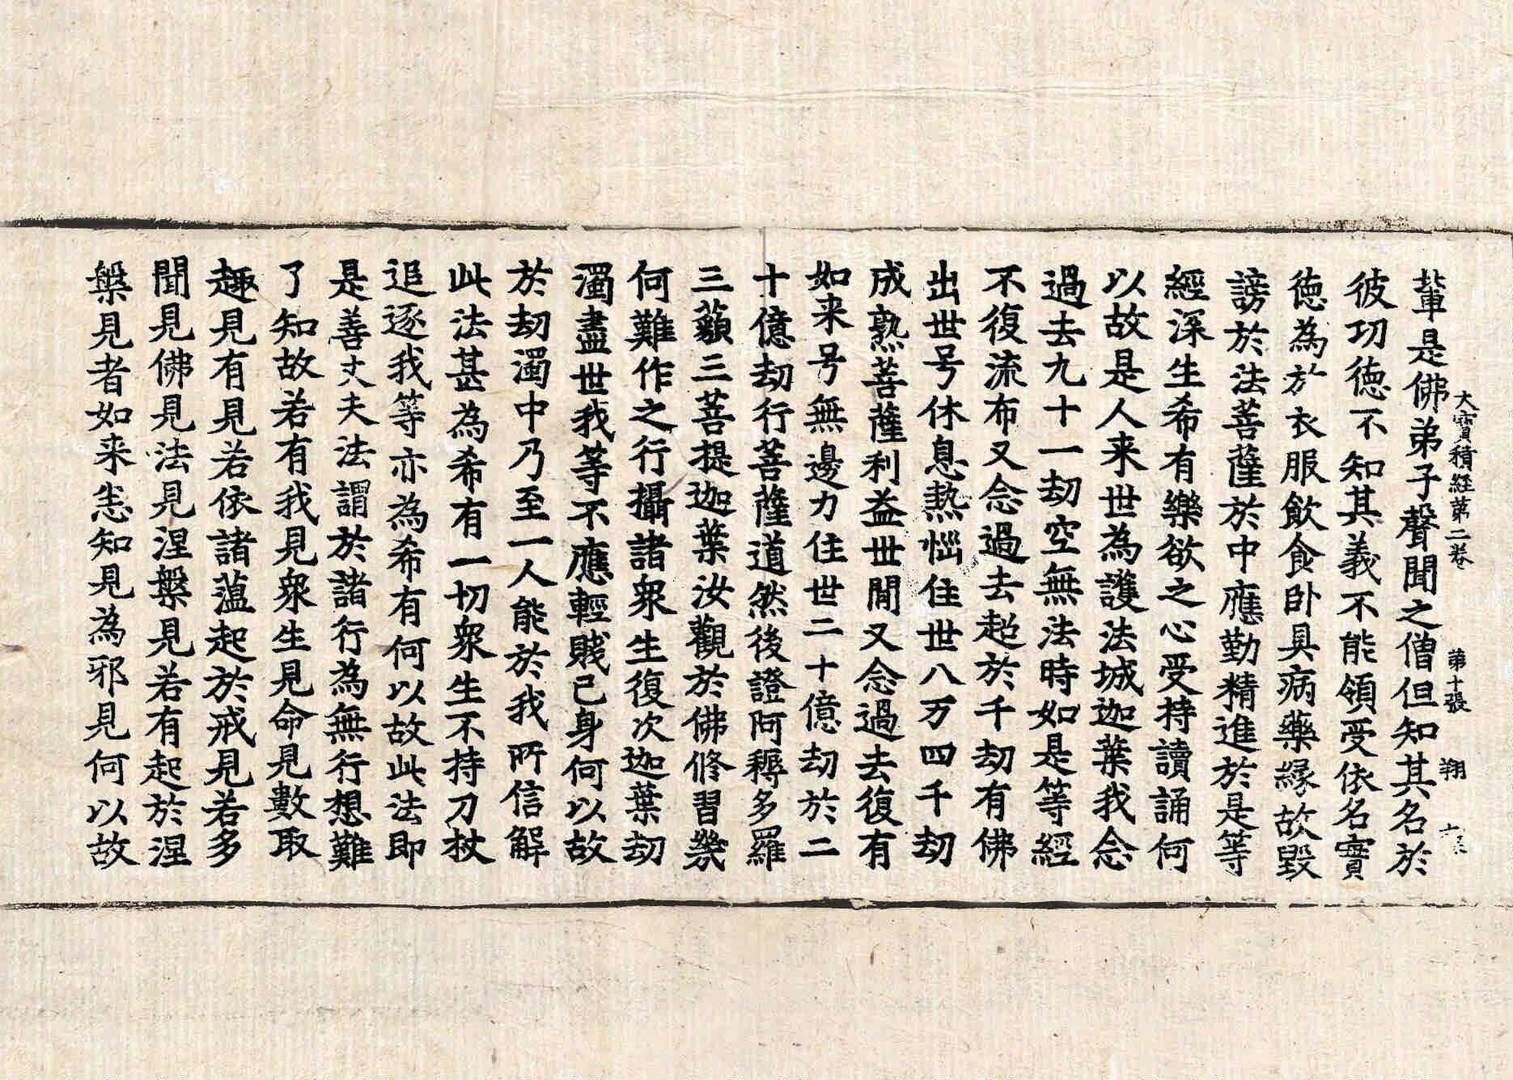 大寶積經第二卷 第十張 翔
輩是佛弟子聲聞之僧但知其名於
彼功德不知其義不能領受依名實
德為於衣服飲食卧具病藥緣故毀
謗於法菩薩於中應勤精進於是等
經深生希有樂欲之心受持讀誦何
以故是人来世為護法城迦葉我念
過去九十一劫空無法時如是等經
不復流布又念過去超於千劫有佛
出世号休息熱惱住世八万四千劫
成熟菩薩利益世間又念過去復有
如来号無邊力住世二十億劫於二
十億劫行菩薩道然後證阿耨多羅
三藐三菩提迦葉汝觀於佛修習幾
何難作之行攝諸衆生復次迦葉劫
濁盡世我等不應輕賤己身何以故
於劫濁中乃至一人能於我所信解
此法甚為希有一切衆生不持刀杖
追逐我等亦為希有何以故此法即
是善丈夫法謂於諸行為無行想難
了知故若有我見衆生見命見數取
趣見有見若依諸薀起於戒見若多
聞見佛見法見涅槃見若有起於涅
槃見者如来悉知見為邪見何以故